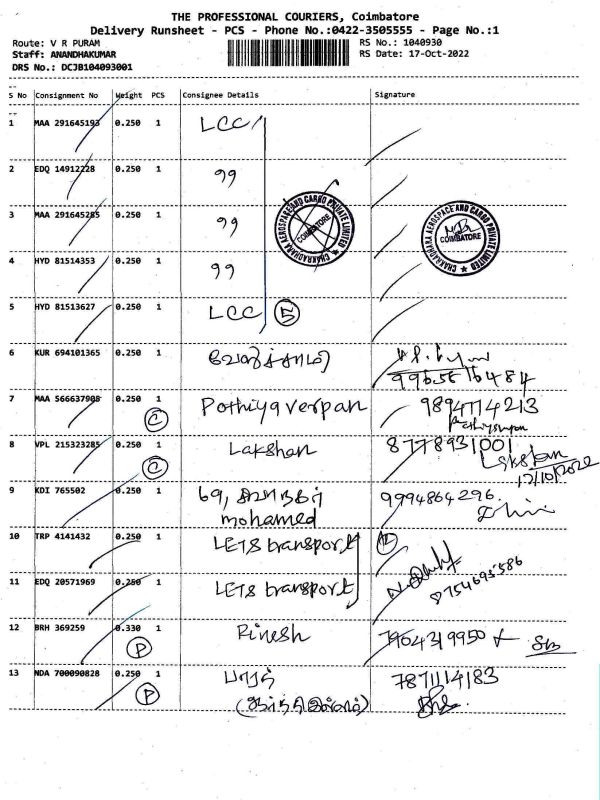 THE PROFESSIONAL COURIERS, Coimbatore
Delivery Runsheet - PCS - Phone No.:0422-3505555 - Page No.:1
Route: V R PURAM
RS No.: 1040930
Staff: ANANDHAKUMAR
RS Date: 17-Oct-2022
DRS No.: DCJB104093001
S No Consignment No Weight PCS Consignee Details Signature
1 MAA 291645193 0.250 1 LCC
2 EDQ 14912228 0.250 1 99
3 MAA 291645285 0.250 1 99
CHAKRADHARA AEROSPACE AND CARGO PRIVATE LIMITED
COIMBATORE
CHAKRADHARA AEROSPACE AND CARGO PRIVATE LIMITED
COIMBATORE
4 HYD 81514353 0.250 1 99
5 HYD 81513627 0.250 1 LCC 5
6 KUR 694101365 0.250 1
9965516484
7 MAA 566637905 0.250 1 Pothiyaverpan 9894774213
C
8 VPL 215323285 0.250 1 Lakshan 8778931001
C
17/10/2022
9 KDI 765502 0.250 1 69, 9994864296
mohamed
10 TRP 4141432 0.250 1 LETS transport
11 EDQ 20571969 0.250 1 LETS transport 8754693586
12 BRH 369259 0.330 1 Rinesh 7904319950
P
13 NDA 700090828 0.250 1 பாரத் 7871114183
P